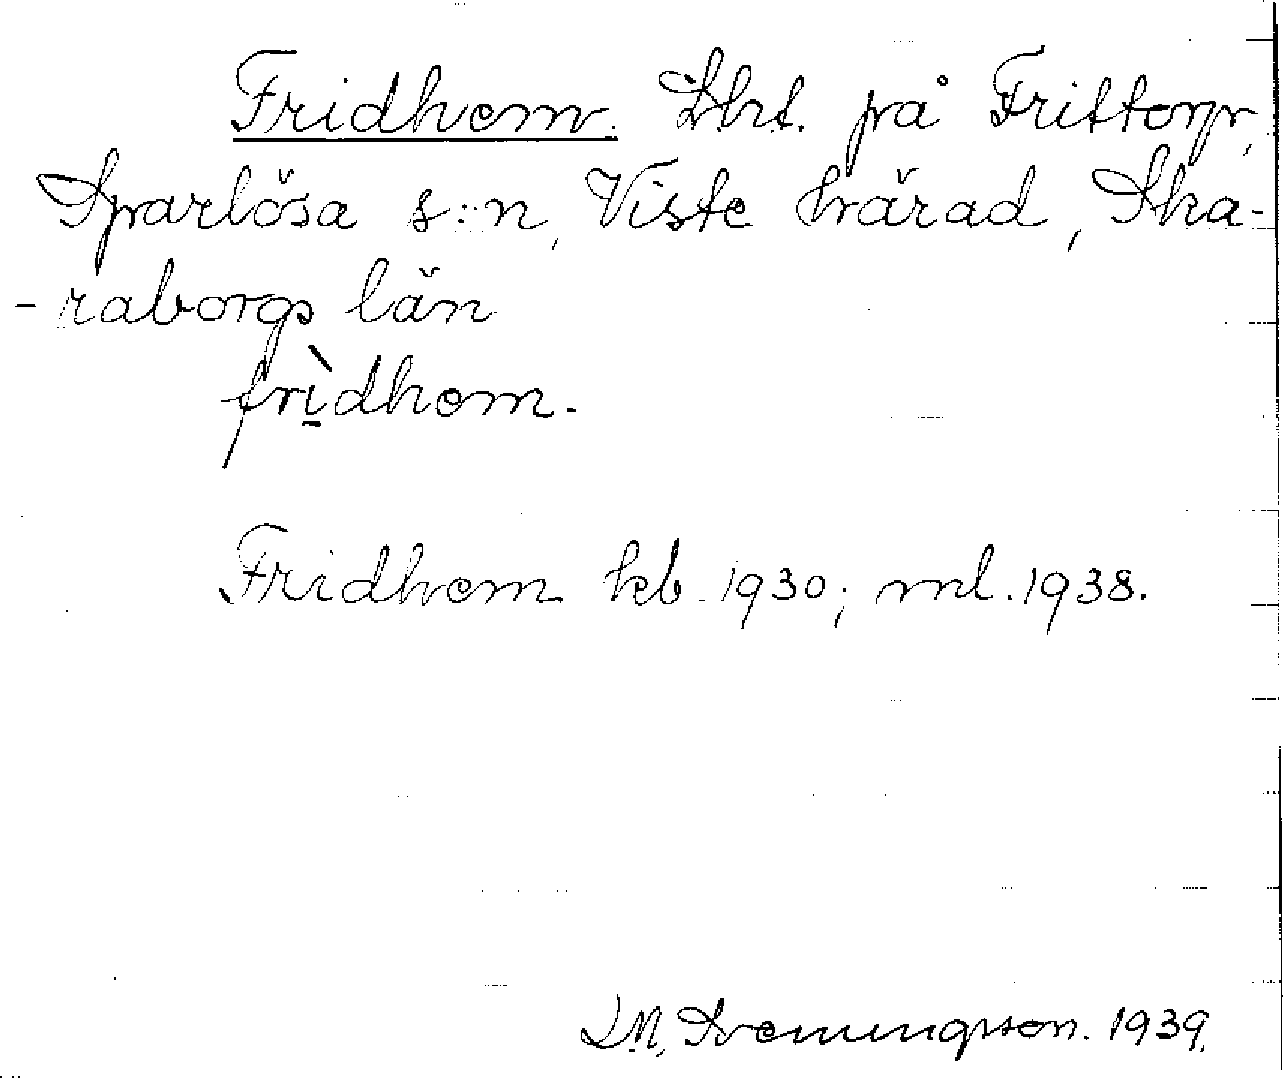 Fridhem. Lht. på Frittorp,
Sparlösa s:n, Viste härad, Ska-
-raborgs län
frìdhem.
Fridhem kb. 1930; ml. 1938.
1939.